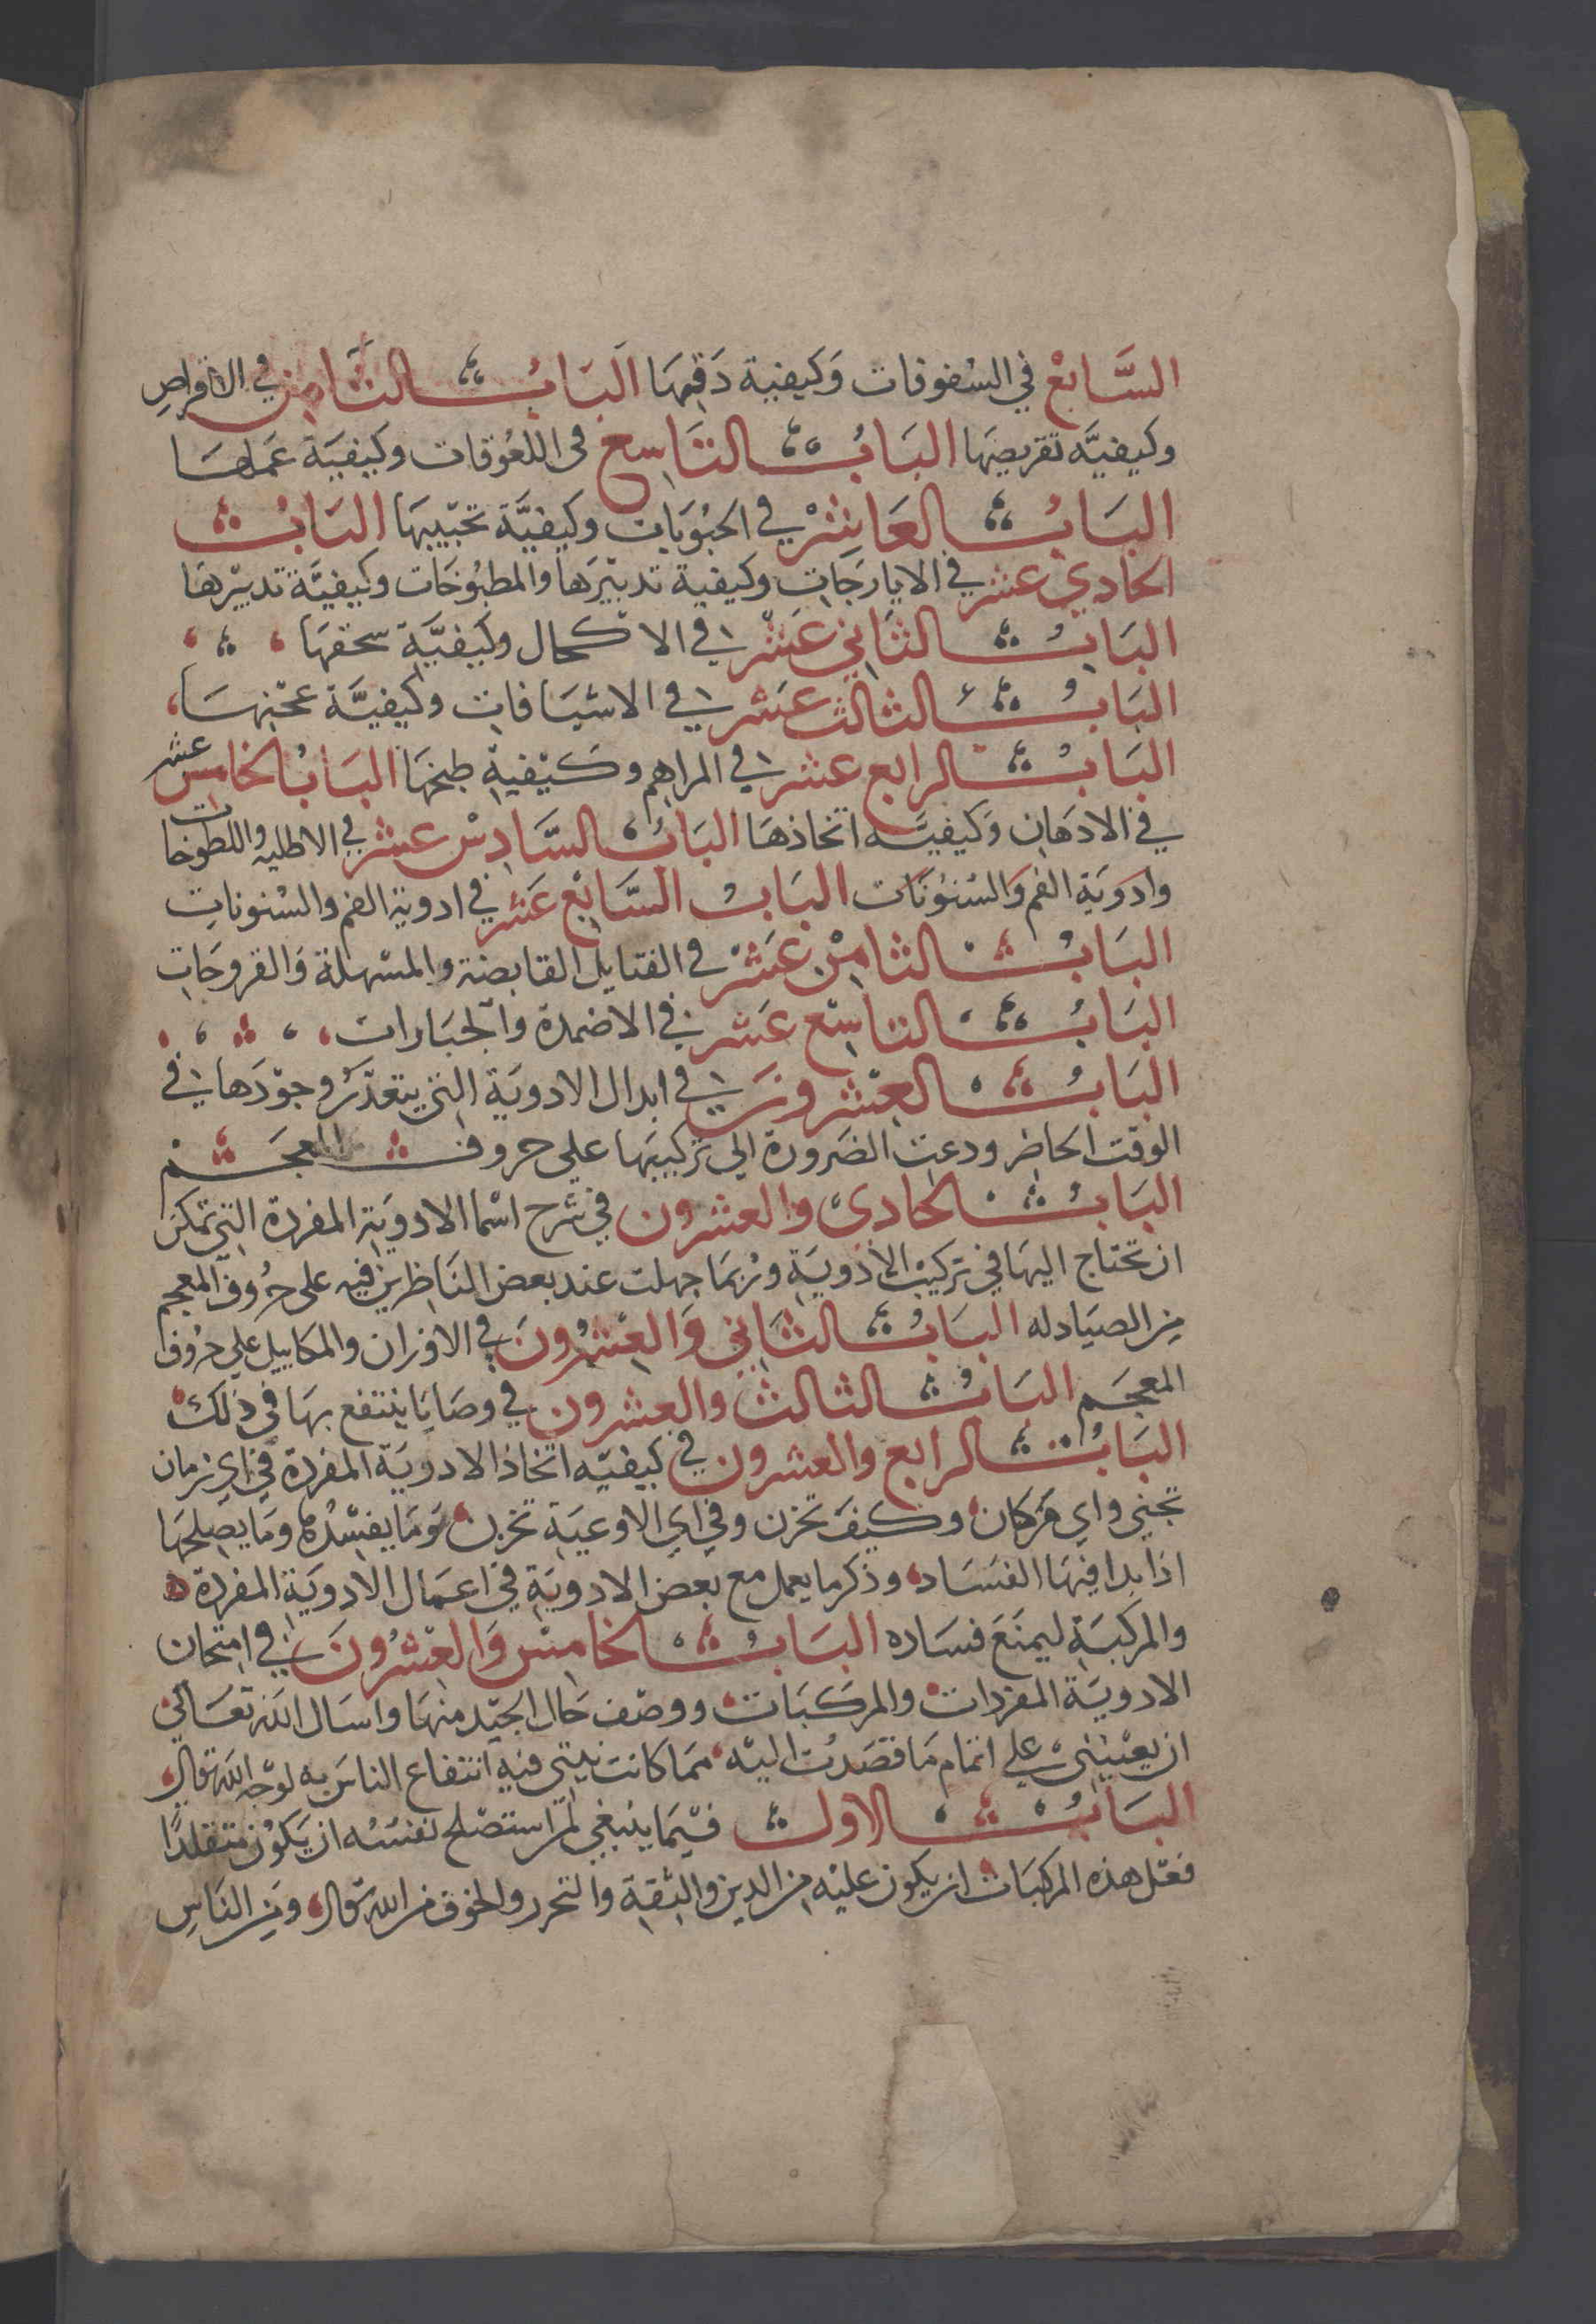 السَّابع في السفوفات وَكيفية دَقهَا البَابُ الثَّامن في الاقراص
وكيفيَّه تقريصهَا البَابُ التاسع في اللعُوقات وكيفيَة عَملهَا
البَابُ العَاشرْ في الحبُوبَات وكيفيَّة تحَبيبهَا البَابُ
الحَادي عَشر في الايارَجَات وكيفية تدبيْرَها والمطبُوخَات وكيفيَّة تدبيْرهَا
البَابُ الثَّاني عَشْر في الاكحال وكَيفيَّة سحقهَا
البَابُ الثالث عَشر في الاشيَافات وكيفيَّة عَجْنهَا
البَابُ الرابع عشر في المراهم وكيْفية طبخهَا البَابُ الخامس عشر
في الادهَان وَكيفيَّه اتخاذهَا البَابُ السَّادسْ عشر في الاطليه واللطوخات
وادوَية الفم وَالسنوُنَات البَابُ السَّابَع عَشر في ادوية الفم والسْنونات
البَابُ الثامْن عَشَرْ في الفتايل القابضة والمسْهلة وَالقروحَات
البَابُ التاسْع عَشر في الاضمدة والجبَارات
البَابُ العشرونَ في ابدال الادويَة التي يتعَذَّرُ وجوْدَها في
الوقت الحاظر ودعت الضَرورة الى تركيبهَا على حروف المعجَم
البَابُ الحادي والعشرون في شرح اسْما الادويَة المفردة التي تمكن
ان تحتاج اليهَا في تركيبْ الادويَة ورُبمَا جهلت عند بعض النَاظرين فيه على حرُوف المعجم
مِن الصيَادله البَابُ الثَاني وَالعشْرُونَ في الاوزان والمكاييل على حرُوف
المعجَم البَابُ الثالث والعشرون في وصَايَا ينتفع بهَا في ذلكَ
البَابُ الرابع والعشرون في كيفيّه اتخاذ الادويَة المفردة في اي زمان
تجنى واي مَركان وكيفَ تخزن وفي اي الاوعيَة تخزن وَمَا يفسْدُه ومَا يصلحهَا
اذا بدا فيهَا الفسَاد وذكر ما يعمل مع بعض الادويَة في اعمَال الادويَة المفردة
والمركبَة ليمنَعَ فسَاده البَابُ الخامسْ وَالعشْرُونَ في امتحان
الادويَة المفردات والمركَبَات ووصْف حَال الجيّد منهَا واسَال الله تعَالى
ان يعيْننىْ على اتمام مَا قصَدْت اليْه مما كانت نيتي فيه انتفاع الناس به لوَجْه الله تعَالى
البَابُ الاول فيْمَا ينبَغي لمن استصْلح نفسَه ان يَكوُن متقلدًا
فعْل هذه المركبَات ان يكون عليْه من الدين والثقة والتحرر والخوف من الله تعَالى ومن النَاسِ